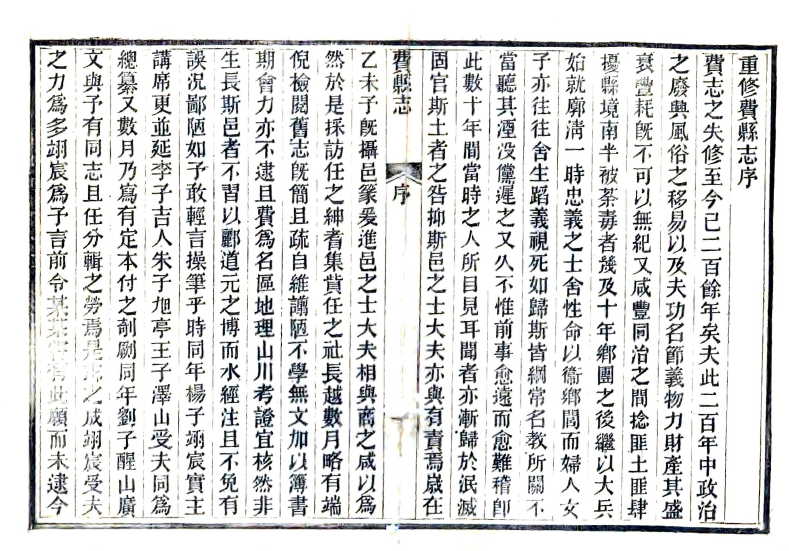 重修費縣志序
費志之失修至今已二百餘年矣夫此二百年中政治
之廢興風俗之移易以及夫功名節義物力財產其盛
衰豐耗旣不可以無紀又咸豐同治之間捻匪土匪肆
擾縣境南半被荼毒者幾及十年鄉團之後繼以大兵
始就廓清一時忠義之士舍性命以衞鄉閭而婦人女
子亦往往舍生蹈義視死如歸斯皆綱常名教所關不
當聽其湮没儻遲之又久不惟前事愈遠而愈難稽卽
此數十年間當時之人所目見耳聞者亦漸歸於泯滅
固官斯土者之咎抑斯邑之士大夫亦與有責焉歲在
費縣志
序
一
乙未予旣攝邑篆爰進邑之士大夫相與商之咸以爲
然於是採訪任之紳耆集貲任之社長越數月略有端
倪檢閱舊志旣簡且疏自維譾陋不學無文加以簿書
期會力亦不逮且費爲名區地理山川考證宜核然非
生長斯邑者不習以酈道元之博而水經注且不免有
誤況鄙陋如予敢輕言操筆乎時同年楊子翊宸實主
講席更並延李子吉人朱子旭亭王子澤山受夫同爲
總纂又數月乃寫有定本付之剞劂同年劉子醒山廣
文與予有同志且任分輯之勞焉是 之成翊宸受夫
之力爲多翊宸爲予言前令某 有此願而未逮今